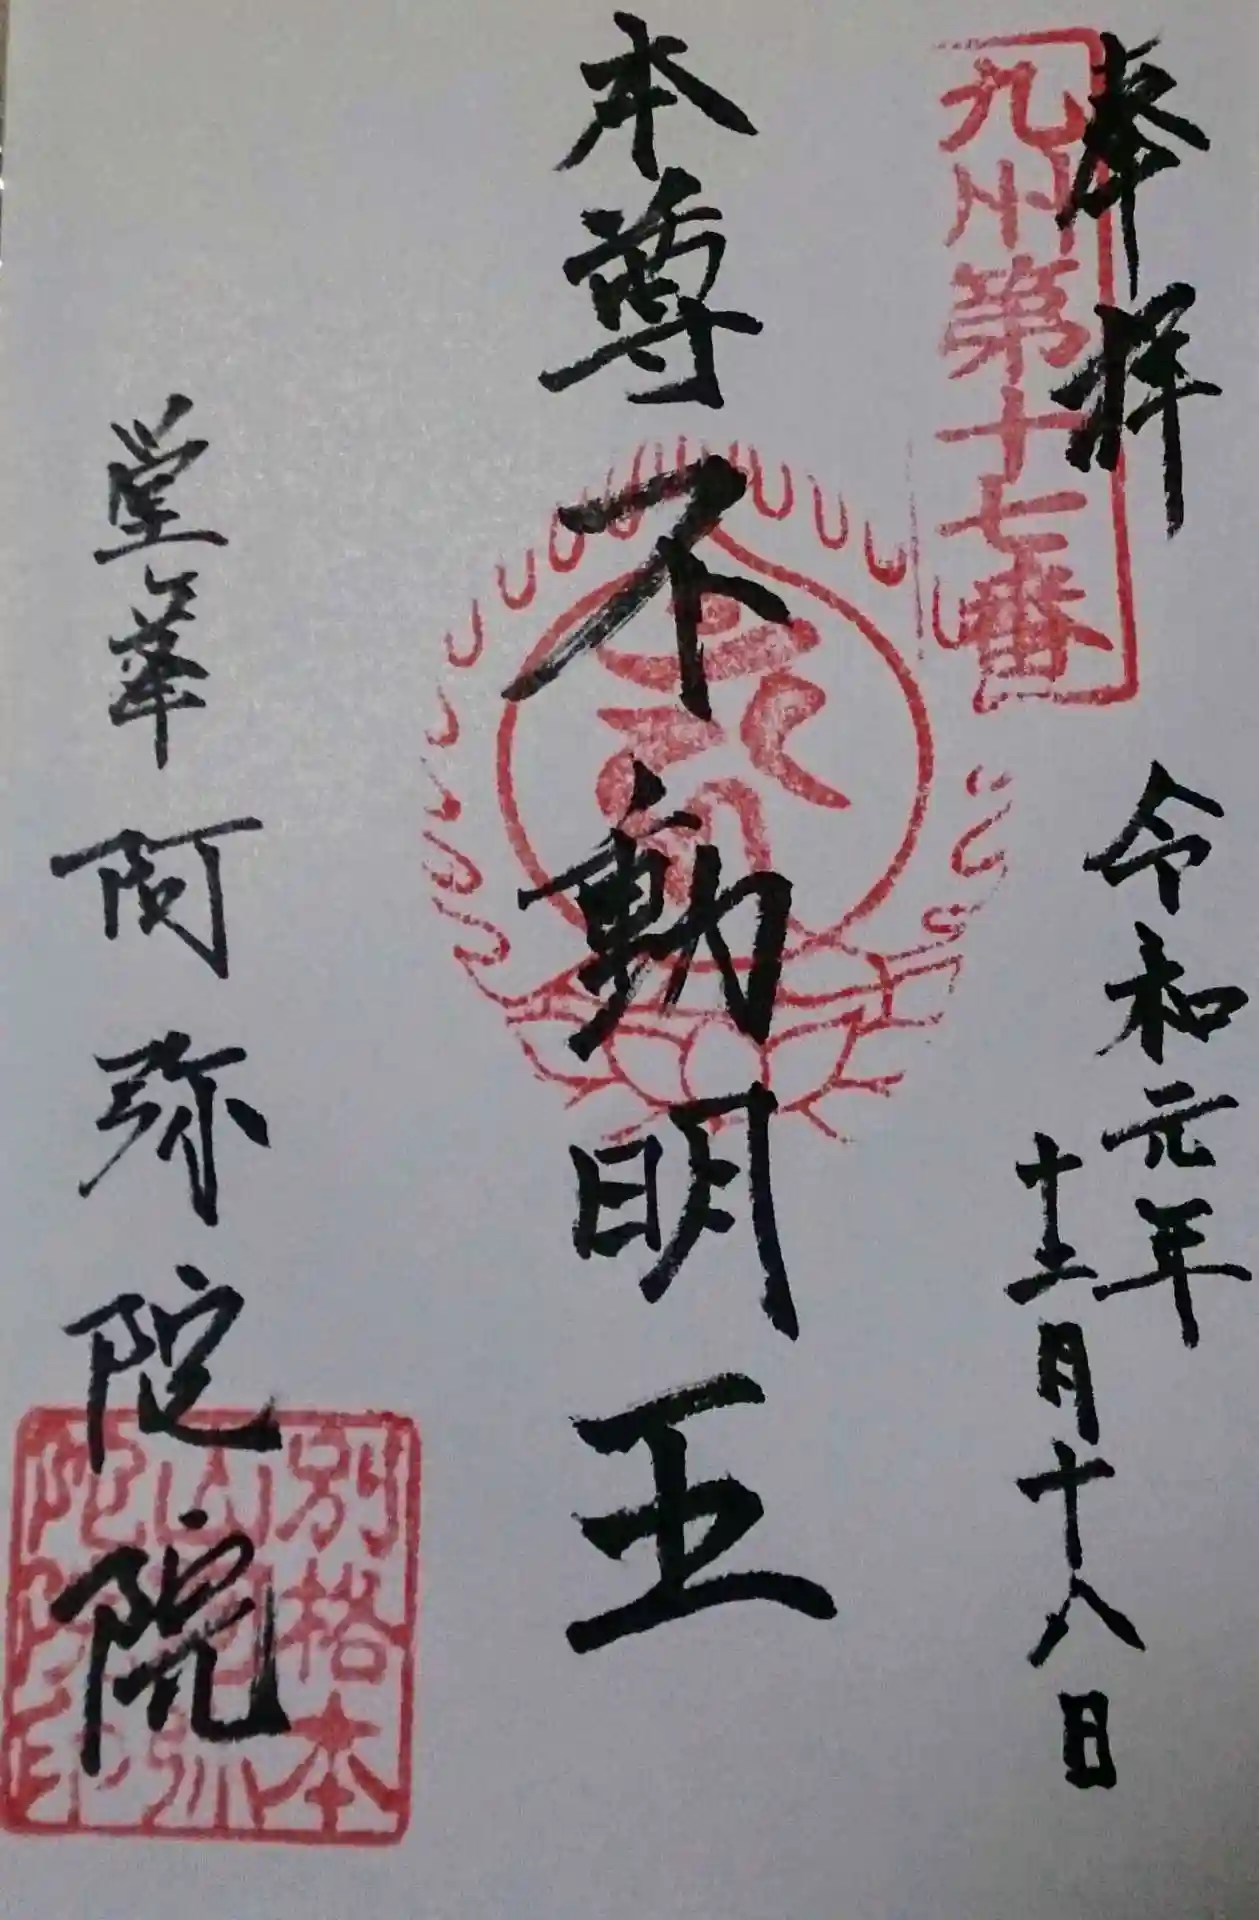 奉拝
九州第十七番
令和元年
十二月十八日
本尊 不動明王
堂塔 阿弥陀院
別格本
山阿弥
陀院印